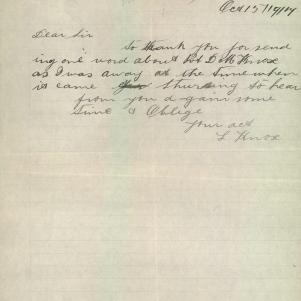 Oct 15/1917
Dear Sir
to thank you for send
ing me word about D M Knox
as I was away at the time when
it came thursing to hear
from you a gain some
time & Oblige
your act
L Knox